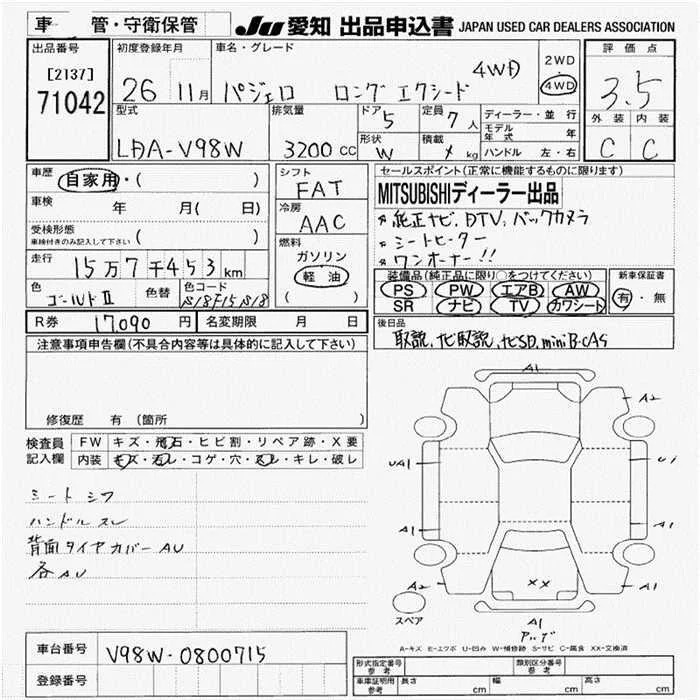 車 管・守衛保管 JU 愛知 出品申込書 JAPAN USED CAR DEALERS ASSOCIATION
出品番号 初度登録年月 車名・グレード 2WD 評価点
[2137] 4WD 4WD
71042 26 11月 パジェロ ロング エクシード 3.5
型式 排気量 ドア 5 定員 7人 ディーラー・並行 外装 内装
モデル年式 年
LDA-V98W 3200cc 形状 W 積載 kg ハンドル 左・右 C C
車歴 自家用・( ) シフト FAT セールスポイント(正常に機能するものに限ります)
車検 年 月( 日) 冷房 AAC MITSUBISHIディーラー出品
純正ナビ、DTV、バックカメラ
受検形態 ( ) 燃料 シートヒーター
車検付きのみ記入して下さい ガソリン ワンオーナー!!
走行 15万7千453km 軽油 装備品(純正品に限り○をつけてください) 新車保証書
色 色替 色コード ( ) PS PW エアB AW 有・無
ゴールドII SR ナビ TV カワシート
R券 17090円 名変期限 月 日 後日品
取説、ナビ取説、ナビSD、miniB-CAS
注意事項申告欄(不具合内容等は具体的に記入して下さい)
修復歴 有 (箇所 )
検査員 FW キズ・飛石・ヒビ割・リペア跡・X要
記入欄 内装 キズ・汚レ・コゲ・穴・スレ・キレ・破レ
シート シワ
ハンドル スレ
背面タイヤカバー AU
各AU
A1
A2
UA1
A1 A1
A2 XX A1
スペア A1
A-キズ E-エクボ U-凹み W-補修跡 S-サビ C-腐食 XX-交換済
車台番号 V98W-0800715
登録番号
形式指定番号 参考 類別区分番号 参考
車庫証明用 参考 長さ cm 幅 cm 高さ cm